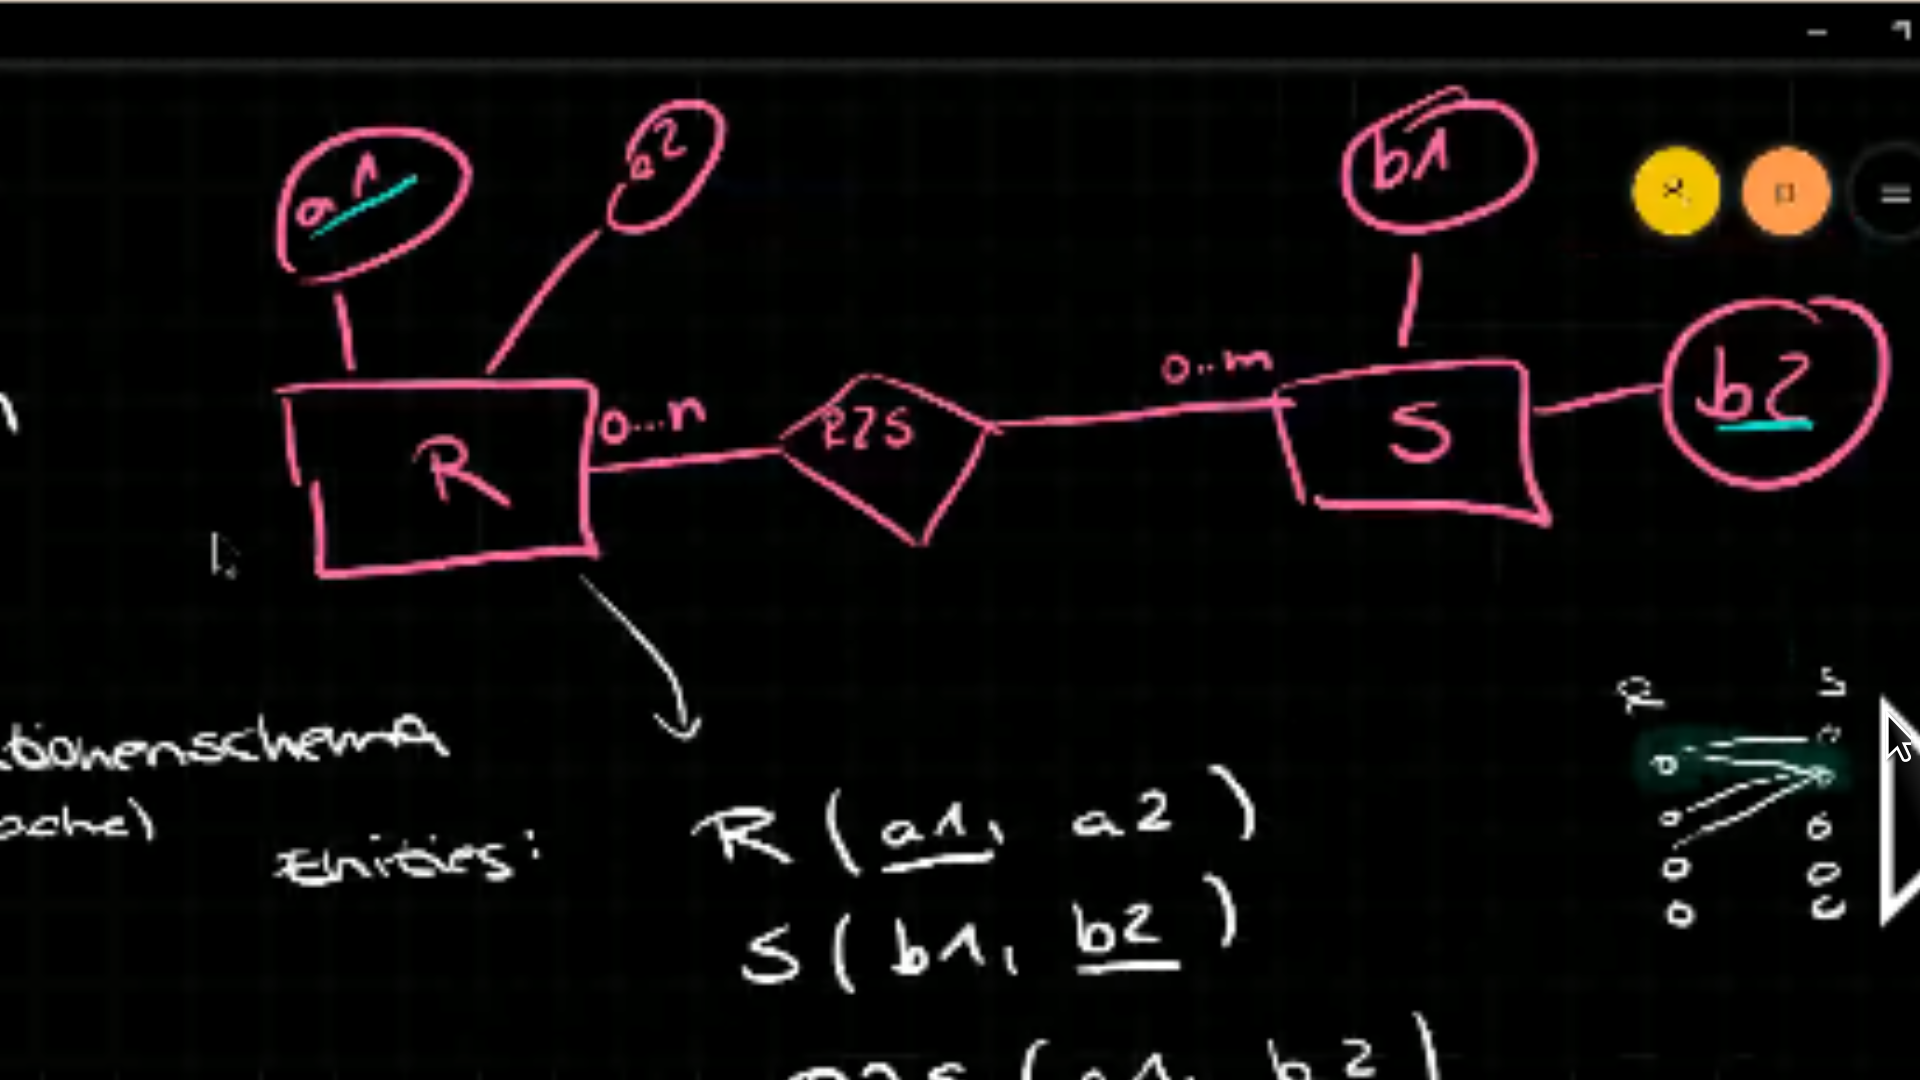 a1
a2
b1
R
0...n
R2S
0..m
S
b2
R S
tionenschema
ache)
Enities:
R (a1, a2)
S (b1, b2)
R2S (a1, b2)